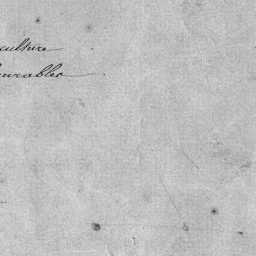 culture
urables